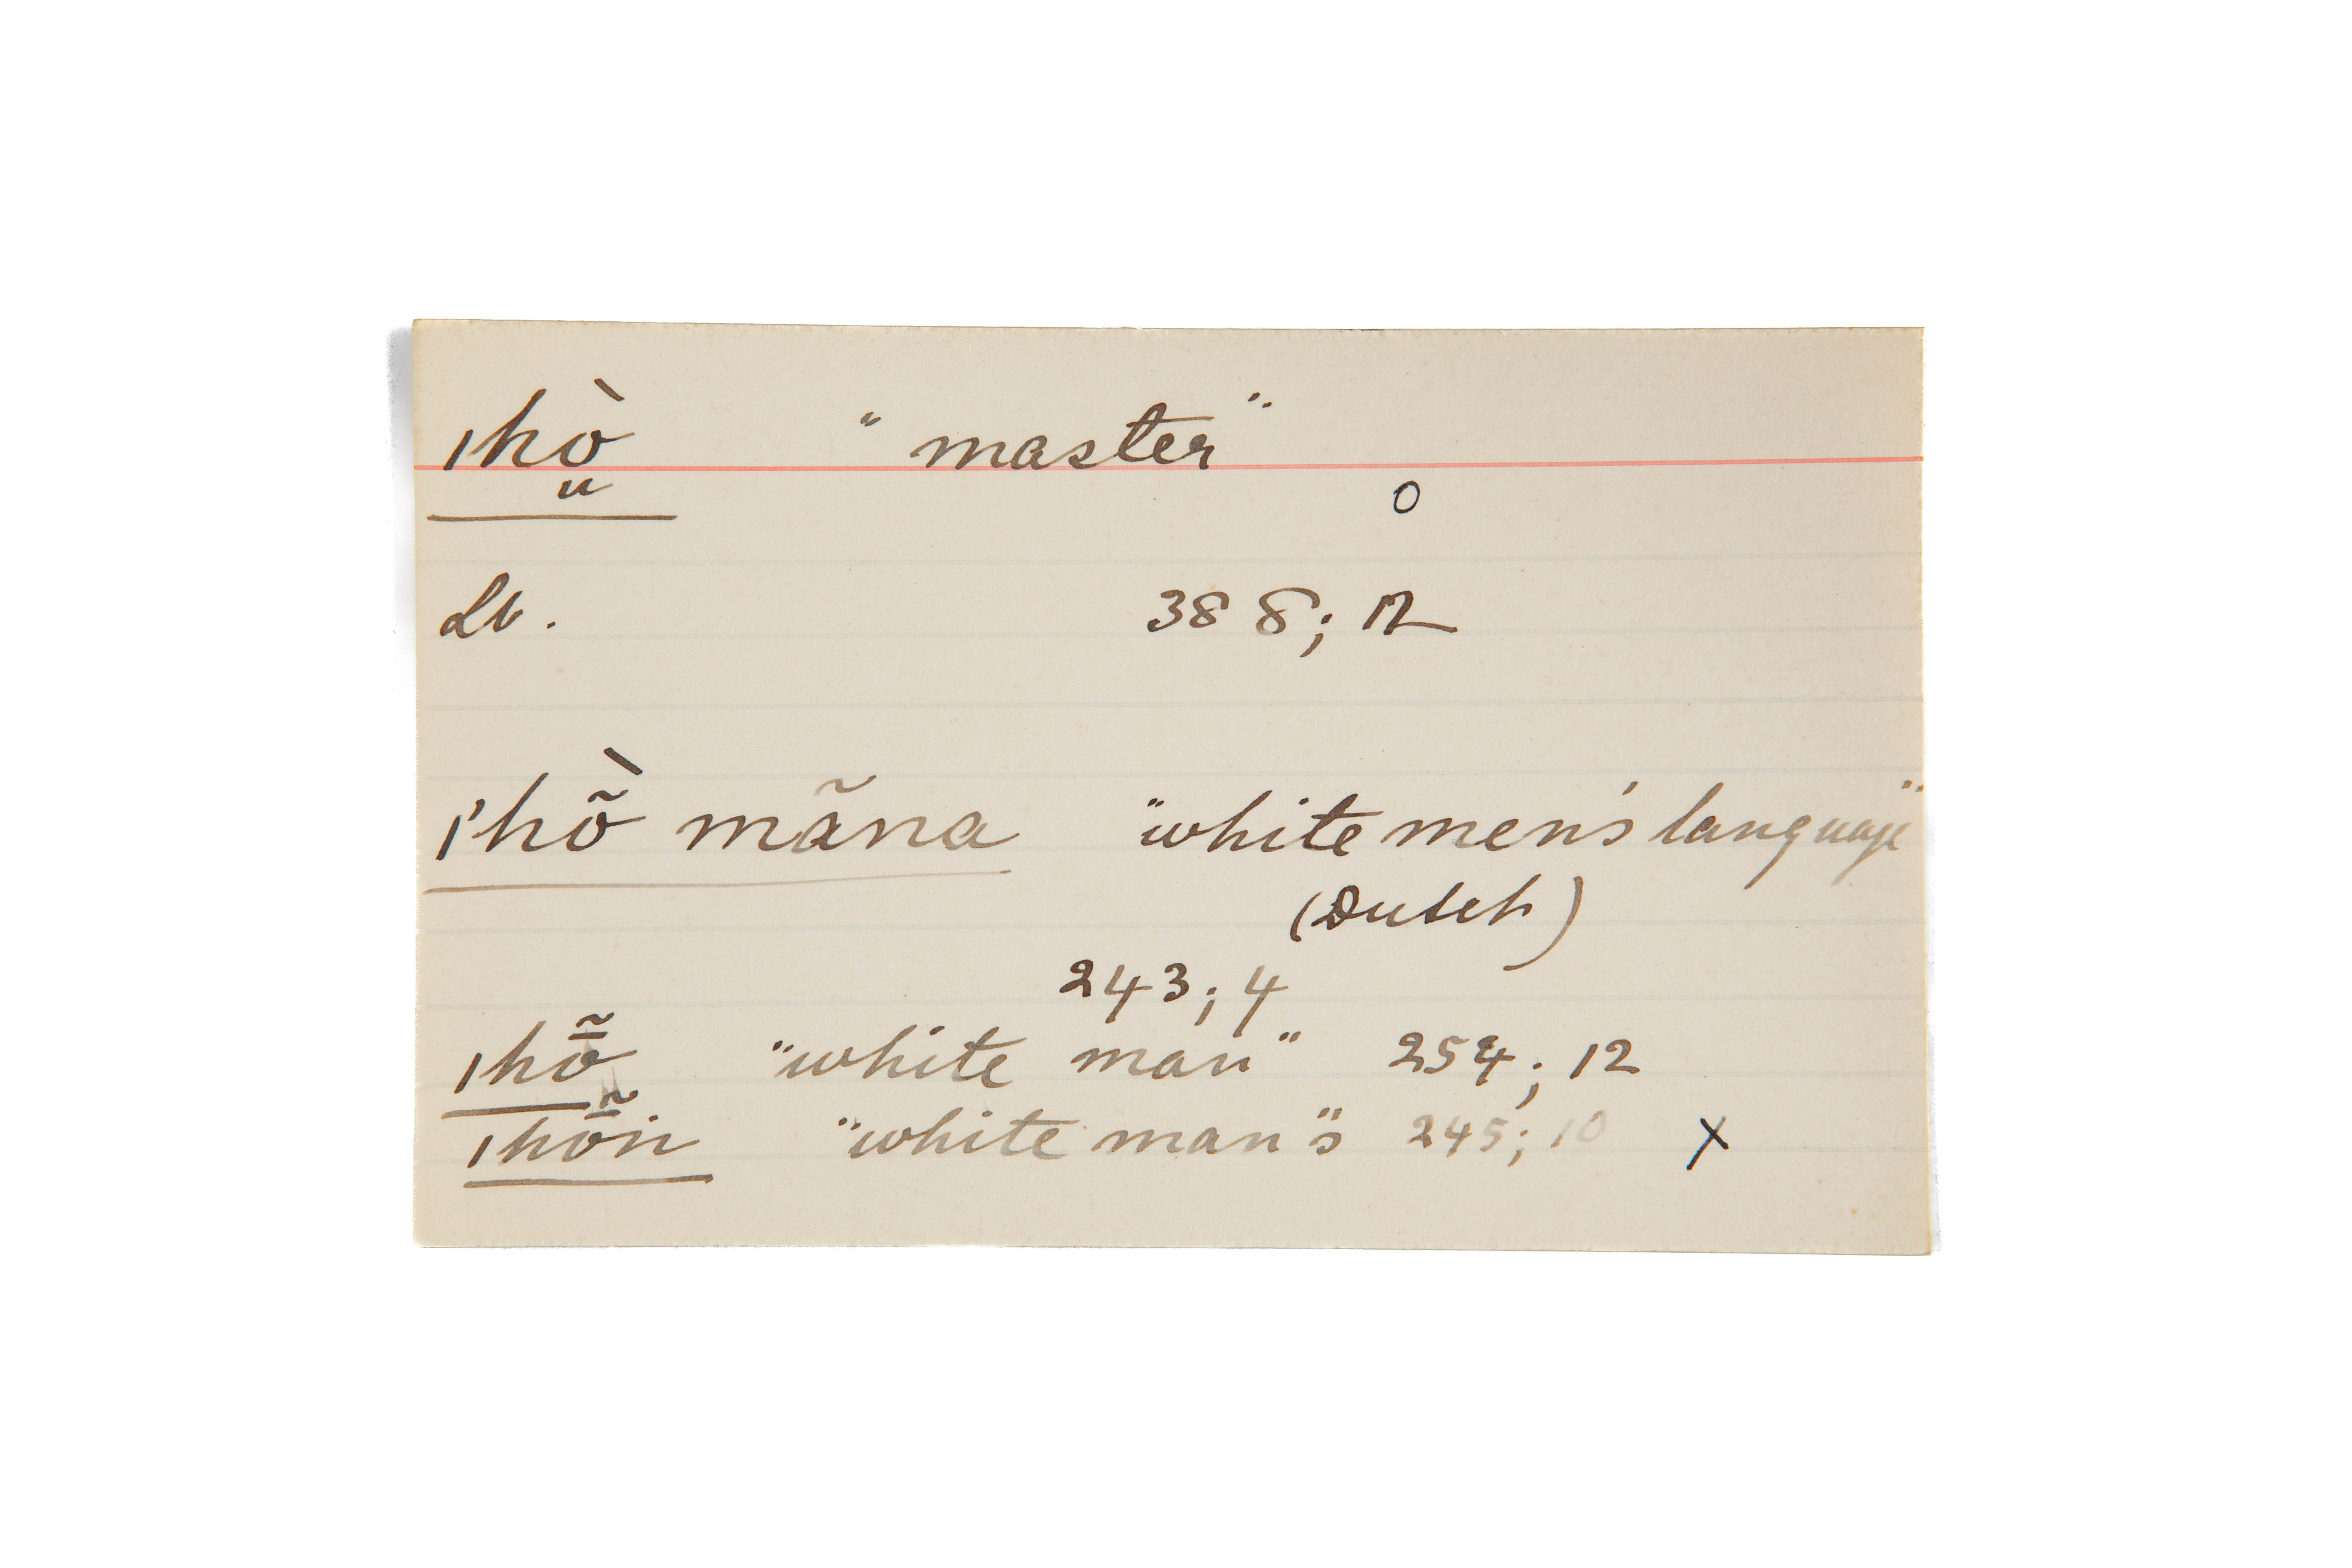 ıhò̤ "master"
o
Lb. 388; 12
ı'hò̃ mãna "white men's language"
(Dutch)
243; 4
ıhō̃ "white man" 254; 12
ıhō̃ṅ "white man"s 245; 10 X